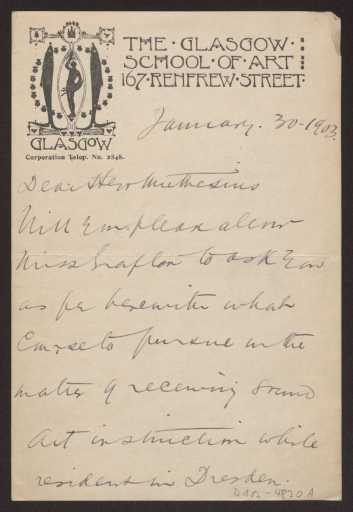 THE · GLASGOW ·
SCHOOL · OF · ART
167 · RENFREW · STREET
GLASGOW
Corporation Telep. No. 2848.
January. 30-1903.
Dear Herr Muthesius
Will you please allow
Miss Grafton to ask you
as per herewith what
Course to pursue in the
matter of receiving sound
Art instruction while
resident in Dresden.